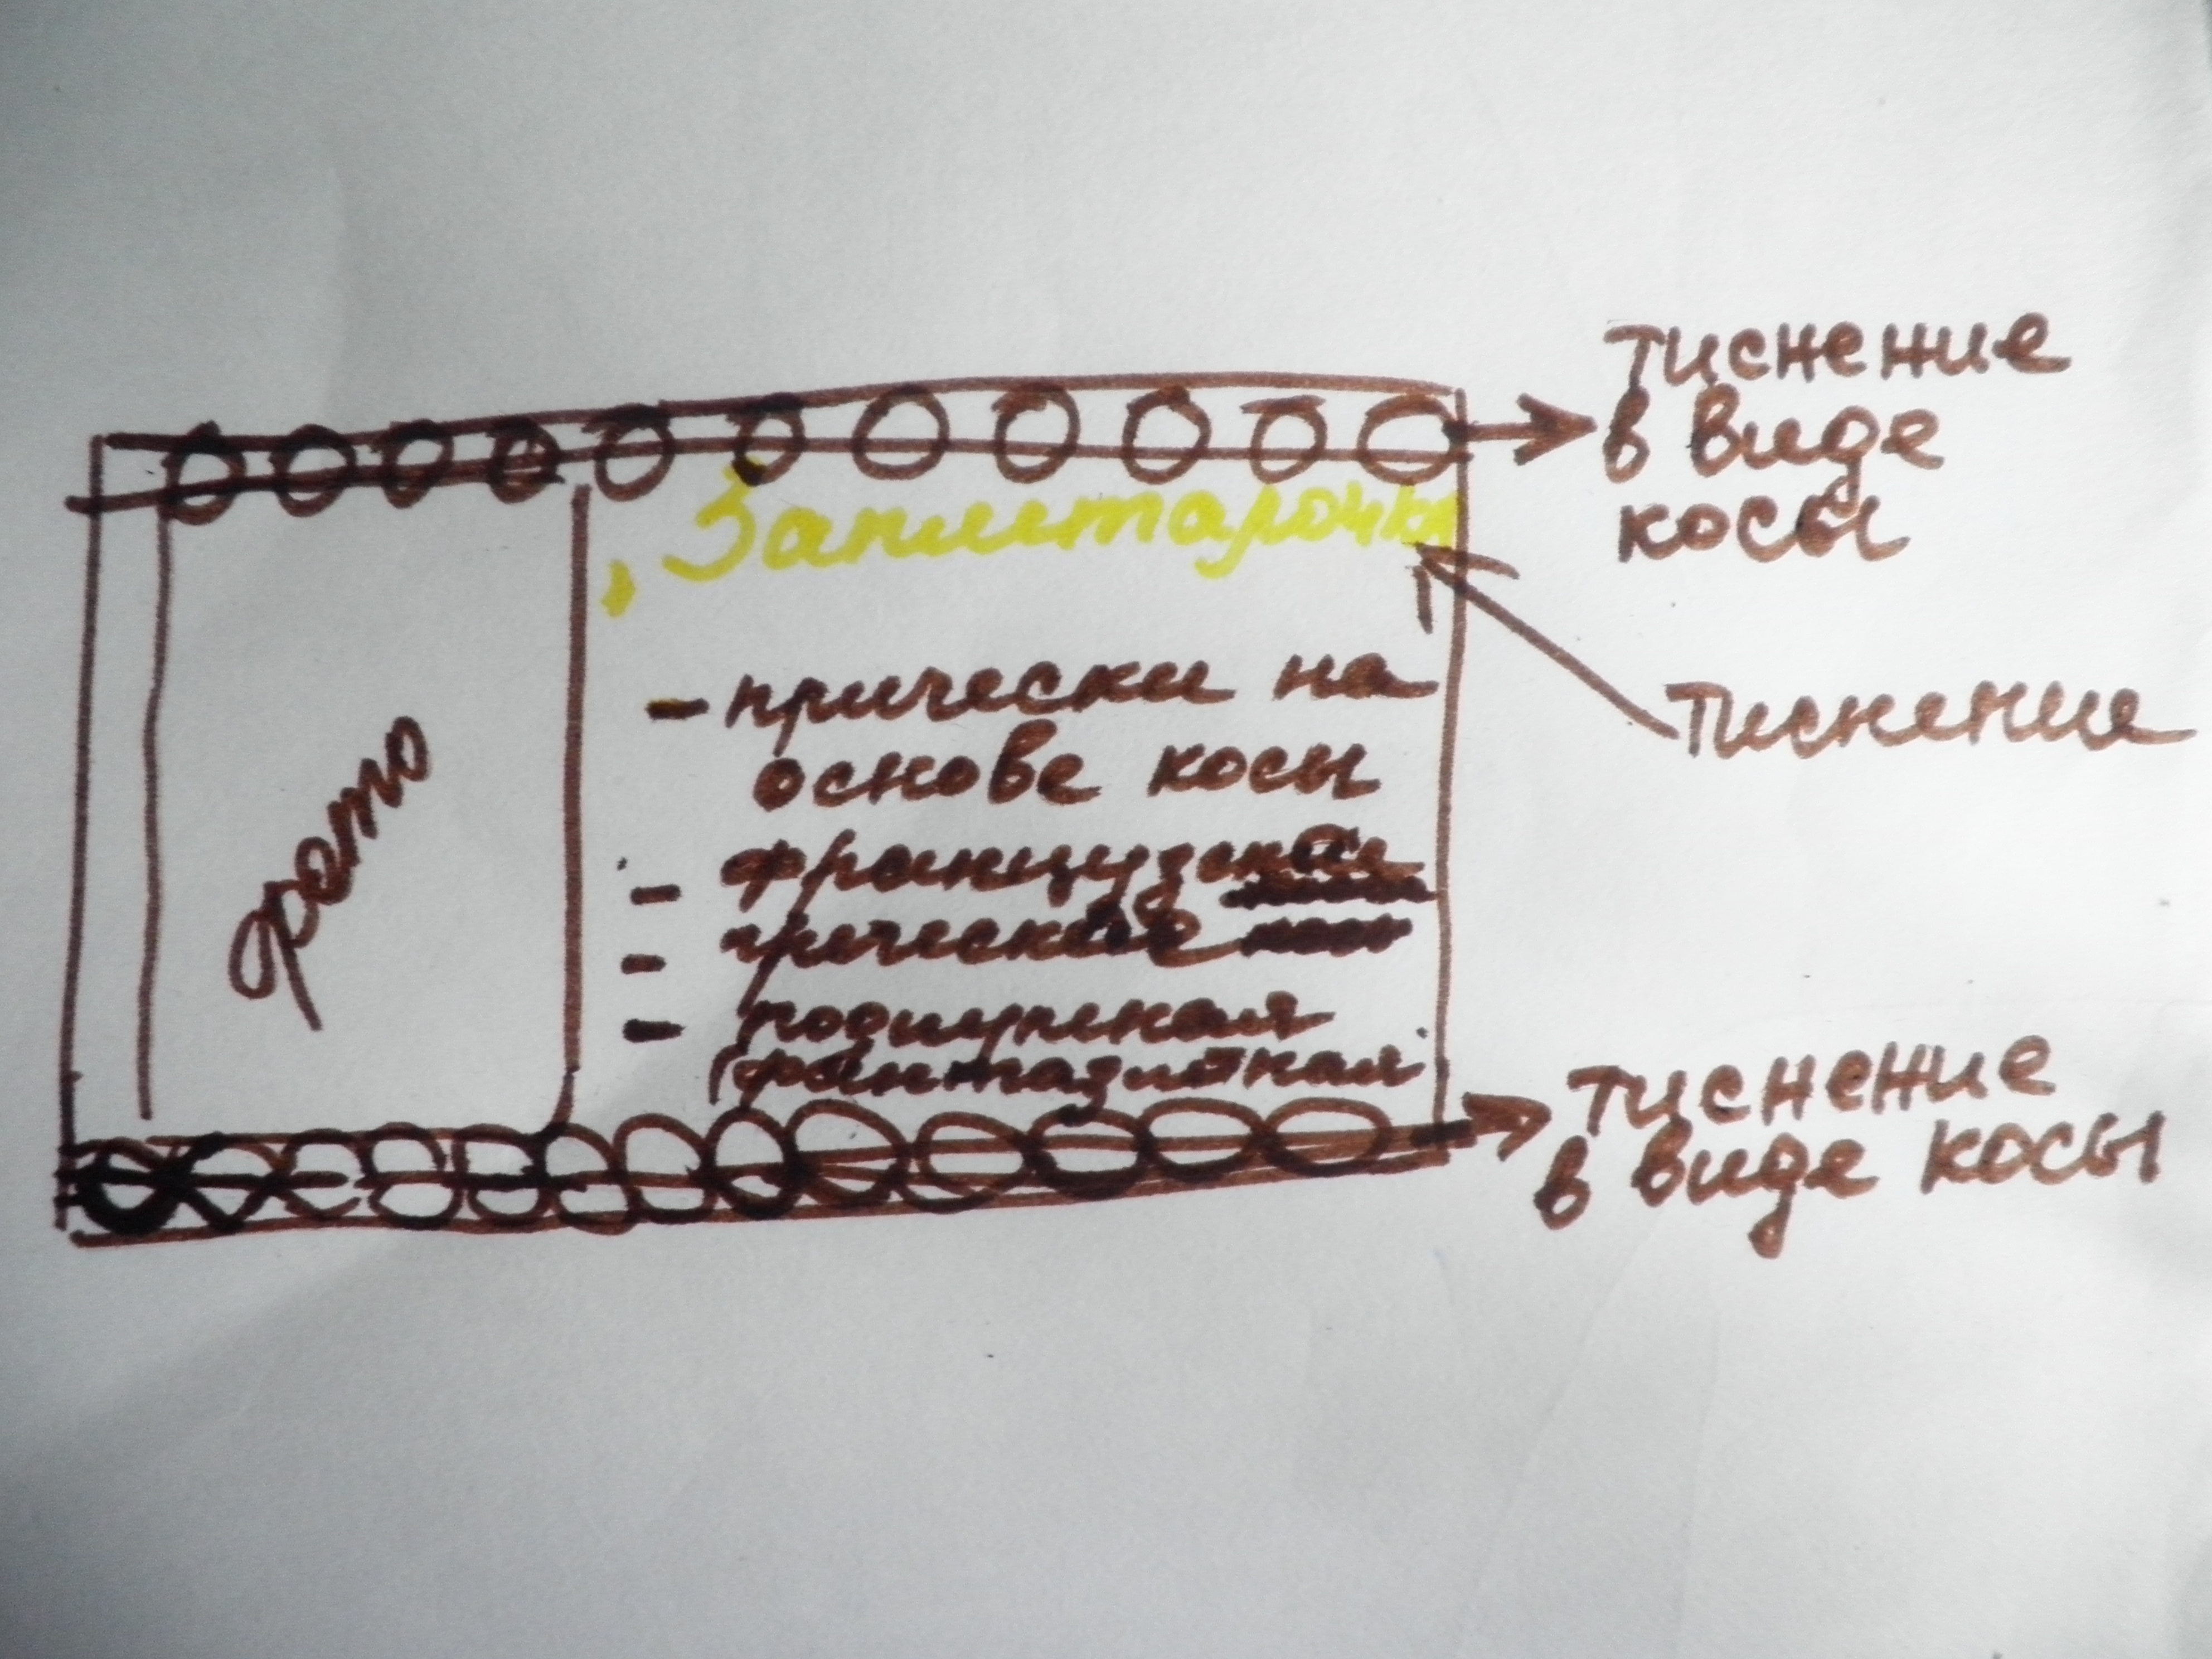 тиснение
в виде
косы
„Заплитарочка
Тиснение
фото
- прически на
основе косы
- французские
- греческие
-
(фантазийная
тиснение
в виде косы